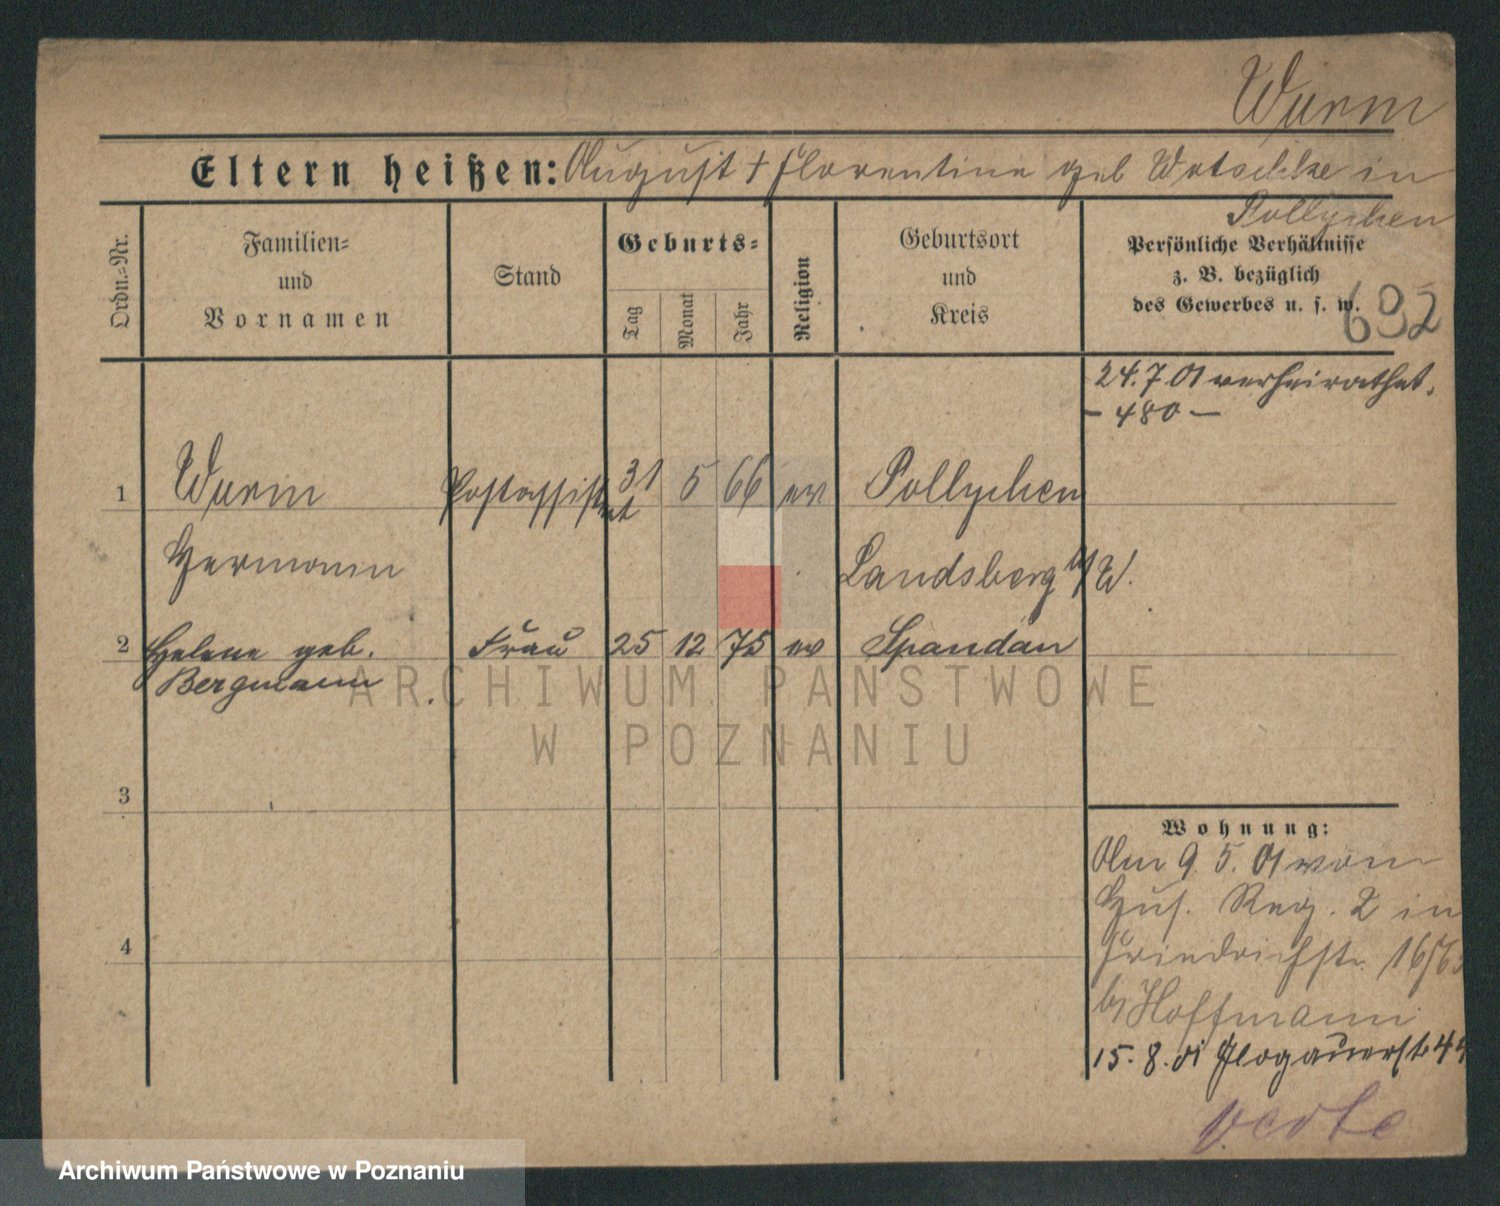 Wurm
Eltern heißen: August + Florentine geb Watschke in
Pollychen
Ordn.=Nr.
Familien=
und
Vornamen
Stand
Geburts=
Tag
Monat
Jahr
Religion
Geburtsort
und
Kreis
Persönliche Verhältnisse
z. B. bezüglich
des Gewerbes u. s. w.
692
24.7.01 verheirathet.
- 480 -
1 Wurm Postassist 31 5 66 ev Pollychen
nt
Hermann Landsberg a/W.
2 Helene geb. Frau 25 12 75 ev Spandau
Bergmann
3
4
Wohnung:
Am 9. 5. 01 vom
Hus. Reg. 2 in
Friedrichstr.
b/ Hoffmann
15. 8. 01 Glogauerstr
verte
ARCHIWUM PAŃSTWOWE
W POZNANIU
Archiwum Państwowe w Poznaniu